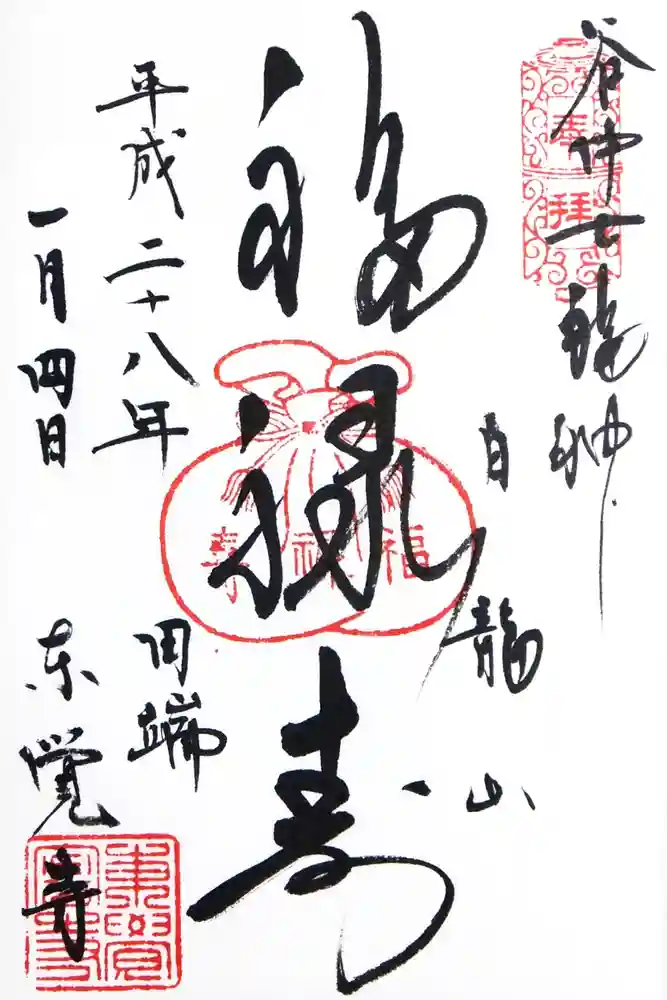 谷仲七福神
奉拝
白龍山
福禄寿
福禄寿
平成二十八年
一月四日
田端
東覚寺
東覺